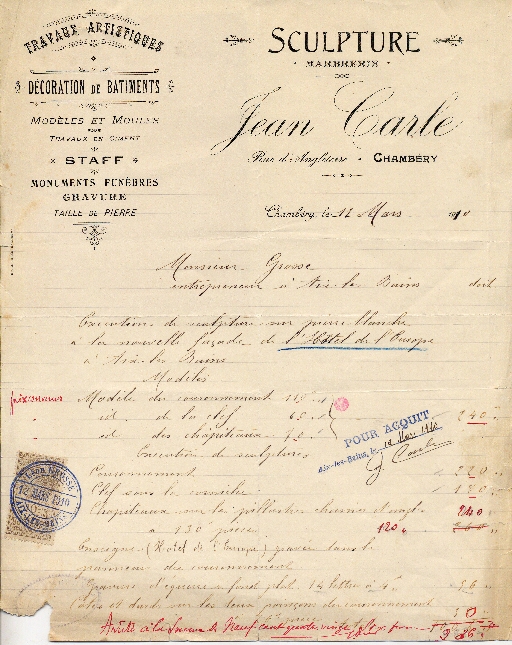 TRAVAUX ARTISTIQUES
DÉCORATION DE BÂTIMENTS
MODÈLES ET MOULES
POUR
TRAVAUX EN CIMENT
STAFF
MONUMENTS FUNÈBRES
GRAVURE
TAILLE DE PIERRE
SCULPTURE
MARBRERIE
Jean Carle
Rue d'Angleterre • CHAMBÉRY
Chambéry, le 12 Mars 1910
Monsieur Grosse
entrepreneur à Aix-les-Bains doit
Execution de sculpture sur pierre blanche
à la nouvelle façade de l'Hôtel de l'Europe
à Aix-les-Bains
Modèles
Modèle du couronnement
id de la clef
id des chapiteaux
240
POUR ACQUIT
Aix-les-Bains, le 12 Mars 1910
J Carle
Execution de sculptures
Couronnement 220
Clef sous la
Chapiteaux sur les
240
à 130 pièce 120
Enseigne (Hotel de l'Europe) gravée dans le
panneau du couronnement
Gravure fond plat. 14 lettres à 4 56
sur les deux du couronnement
Arrêté à la Somme de Neuf cent quatre vingt six
986